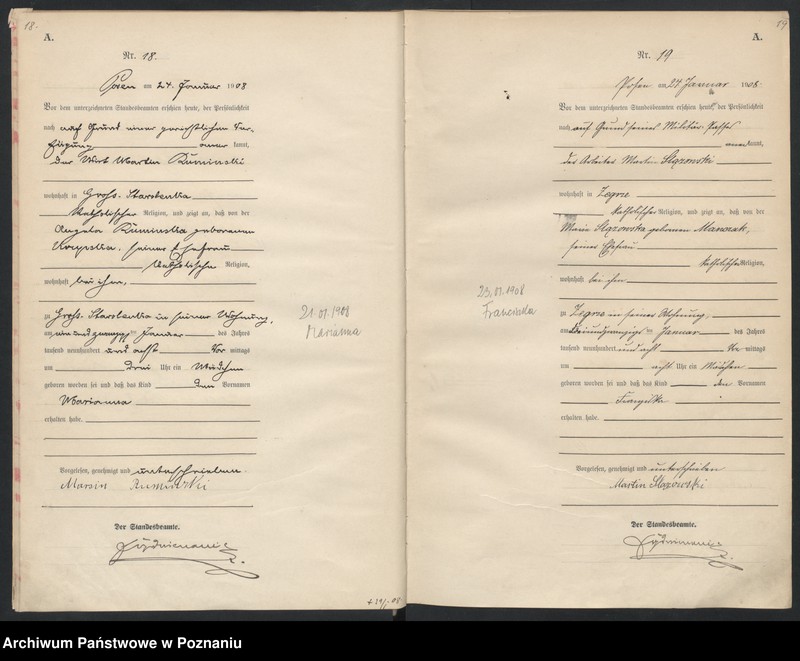 18.
A.
Nr. 18.
Posen am 24. Januar 1908
Vor dem unterzeichneten Standesbeamten erschien heute, der Persönlichkeit
nach auf Grund einer gerichtlichen Ver-
fügung kannt,
der Wirt Martin Ruminski
wohnhaft in Groß-Starolenka
katholischer Religion, und zeigt an, daß von der
Angela Ruminska geborenen
seiner Ehefrau
katholischer Religion,
wohnhaft bei ihm,
zu Groß-Starolenka in seiner Wohnung,
am ein und zwanzigsten Januar des Jahres
tausend neunhundert und acht Vor mittags
um drei Uhr ein Mädchen
geboren worden sei und daß das Kind den Vornamen
Marianna
erhalten habe.
Vorgelesen, genehmigt und unterschrieben
Marcin Rumiński
Der Standesbeamte.
21.01.1908
Marianna
19
A.
Nr. 19
Posen am 24 Januar 1908
Vor dem unterzeichneten Standesbeamten erschien heute, der Persönlichkeit
nach auf Grund seines Militär-Passes
kannt,
der Arbeiter Martin
wohnhaft in Zegrze
katholischer Religion, und zeigt an, daß von der
Maria geborenen
seiner Ehefrau
katholischer Religion,
wohnhaft bei ihm
zu Zegrze in seiner Wohnung,
am dreiundzwanzigsten Januar des Jahres
tausend neunhundert und acht Vor mittags
um acht Uhr ein Mädchen
geboren worden sei und daß das Kind den Vornamen
Franziska
erhalten habe.
Vorgelesen, genehmigt und unterschrieben
Martin
Der Standesbeamte.
23.01.1908
Franciszka
Archiwum Państwowe w Poznaniu